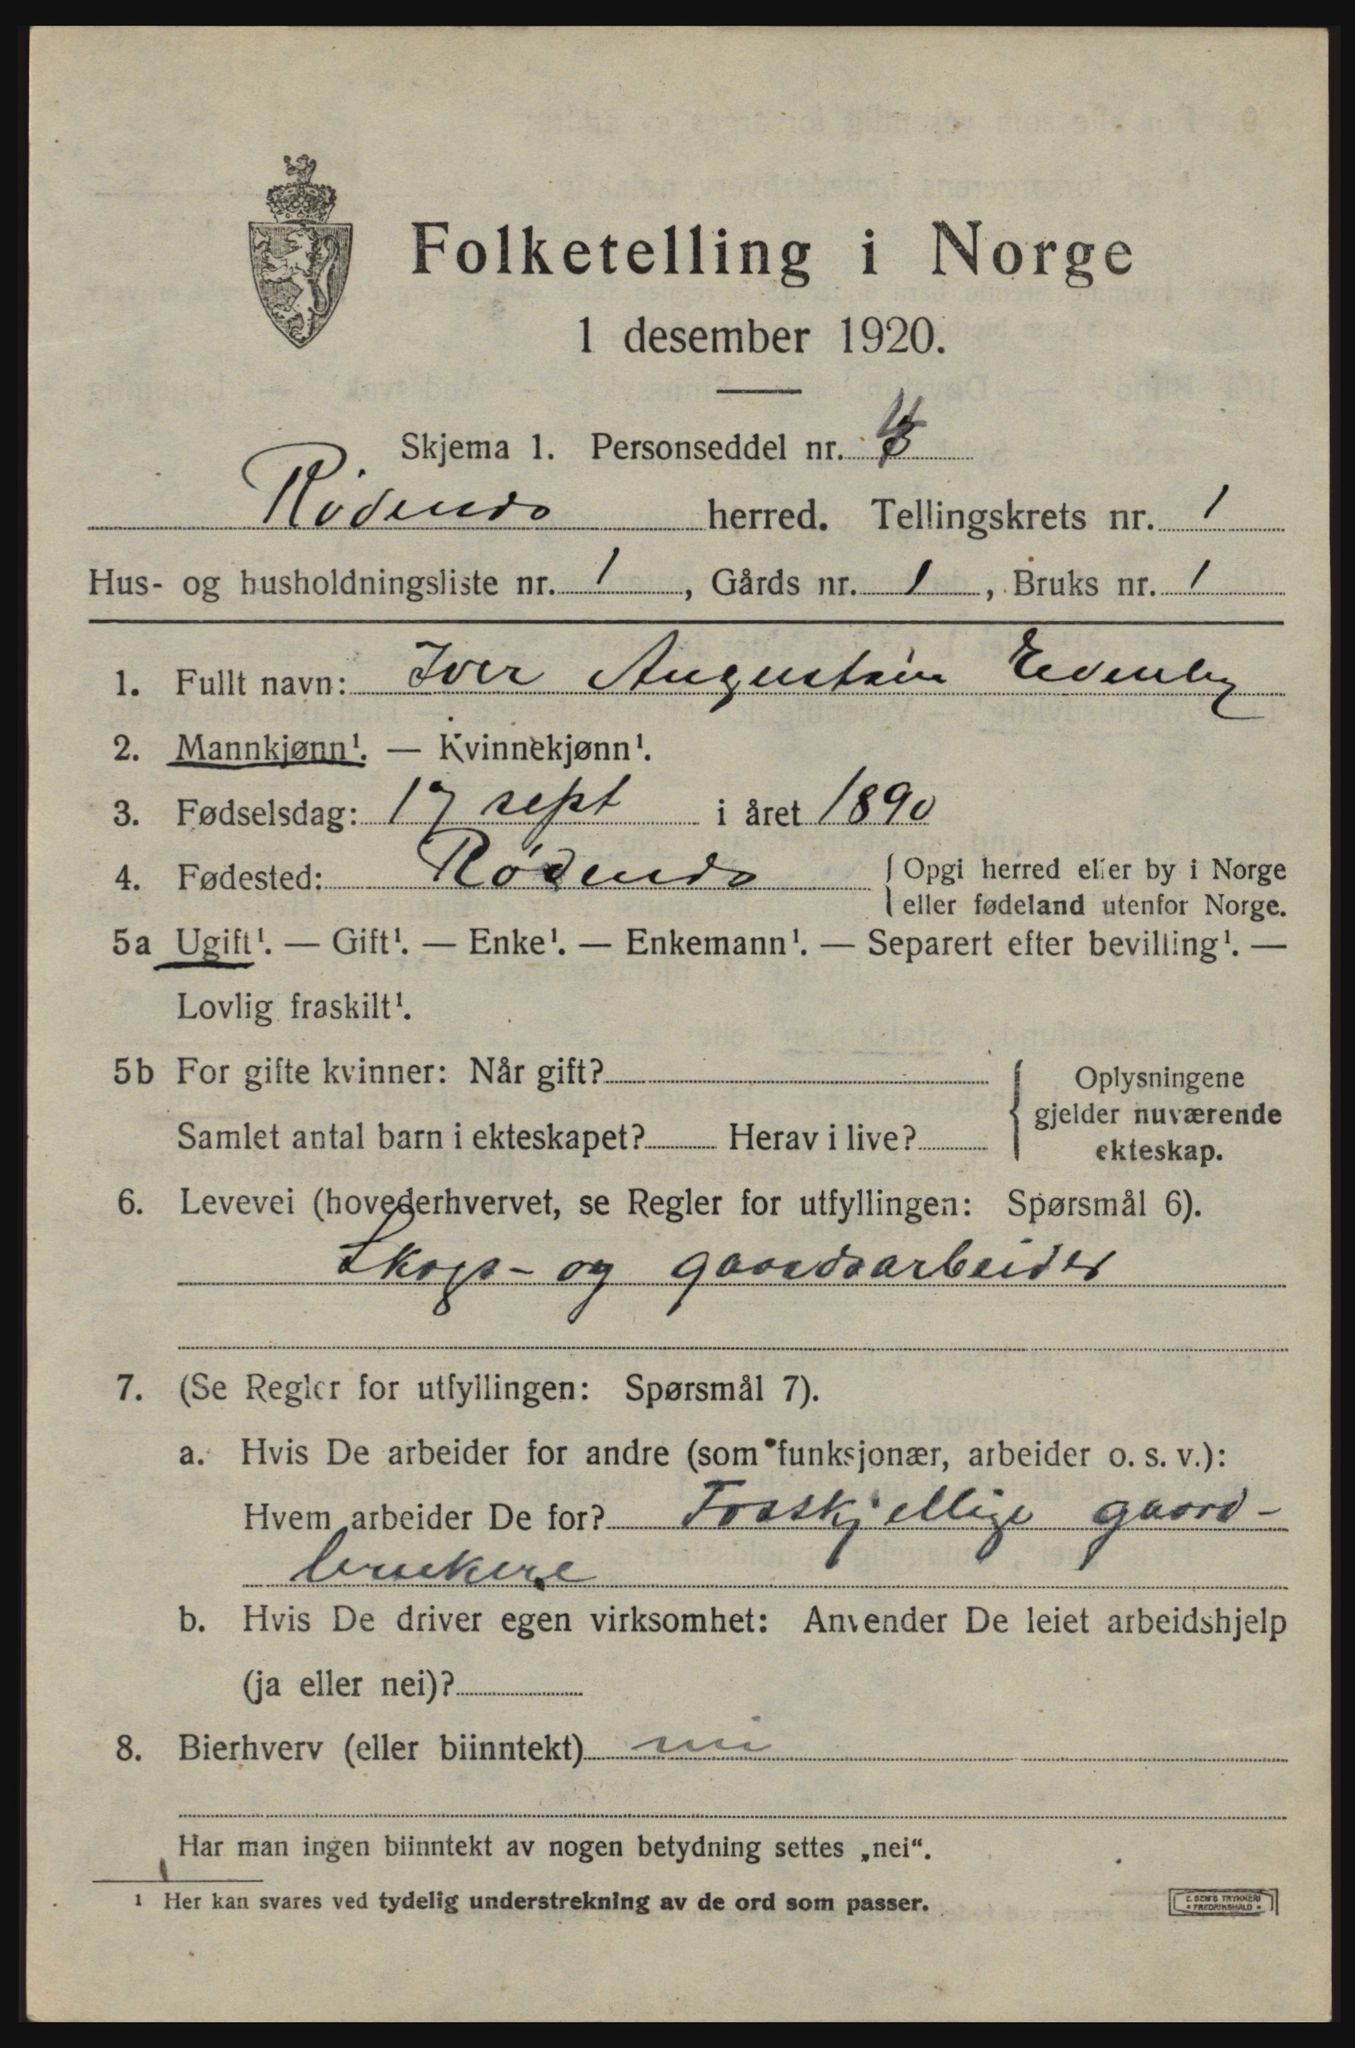 Folketelling i Norge
1 desember 1920.
Skjema 1. Personseddel nr. 4
Rødenes herred. Tellingskrets nr. 1
Hus- og husholdningsliste nr. 1, Gårds nr. 1, Bruks nr. 1
1. Fullt navn: Iver Augustsen
2. Mannkjønn¹. — Kvinnekjønn¹.
3. Fødselsdag: 17 sept i året 1890
4. Fødested: Rødenes { Opgi herred eller by i Norge
eller fødeland utenfor Norge.
5a Ugift¹. — Gift¹. — Enke¹. — Enkemann¹. — Separert efter bevilling¹. —
Lovlig fraskilt¹.
5b For gifte kvinner: Når gift? { Oplysningene
gjelder nuværende
Samlet antal barn i ekteskapet? Herav i live?
ekteskap.
6. Levevei (hovederhvervet, se Regler for utfyllingen: Spørsmål 6).
Skogs- og gaardsarbeider
7. (Se Regler for utfyllingen: Spørsmål 7).
a. Hvis De arbeider for andre (som funksjonær, arbeider o. s. v.):
Hvem arbeider De for? Forskjellige gaard-
brukere
b. Hvis De driver egen virksomhet: Anvender De leiet arbeidshjelp
(ja eller nei)?
8. Bierhverv (eller biinntekt) nei
Har man ingen biinntekt av nogen betydning settes „nei“.
¹ Her kan svares ved tydelig understrekning av de ord som passer.
E. SEM'S TRYKKERI
• FREDRIKSHALD •